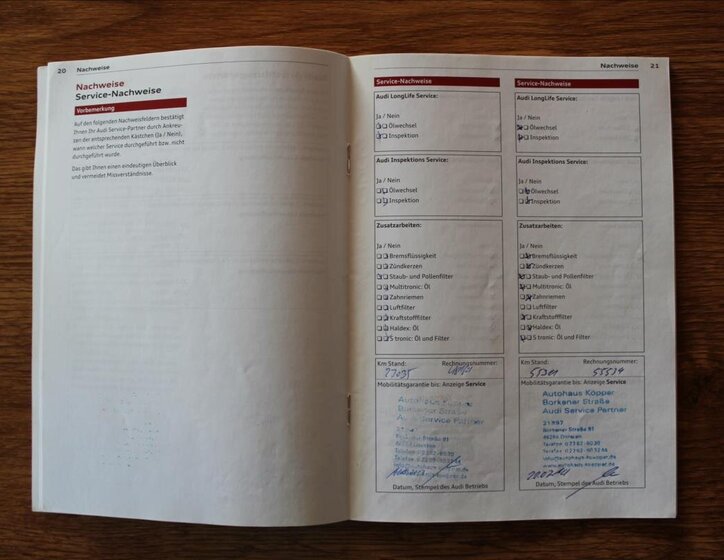 20 Nachweise
Nachweise
Service-Nachweise
Vorbemerkung
Auf den folgenden Nachweisfeldern bestätigt
Ihnen Ihr Audi Service-Partner durch Ankreu-
zen der entsprechenden Kästchen (Ja / Nein),
wann welcher Service durchgeführt bzw. nicht
durchgeführt wurde.
Das gibt Ihnen einen eindeutigen Überblick
und vermeidet Missverständnisse.
Nachweise 21
Service-Nachweise
Audi LongLife Service:
Ja / Nein
Ölwechsel
Inspektion
Audi Inspektions Service:
Ja / Nein
Ölwechsel
Inspektion
Zusatzarbeiten:
Ja / Nein
Bremsflüssigkeit
Zündkerzen
Staub- und Pollenfilter
Multitronic: Öl
Zahnriemen
Luftfilter
Kraftstofffilter
Haldex: Öl
S tronic: Öl und Filter
Km Stand: Rechnungsnummer:
27035
Mobilitätsgarantie bis: Anzeige Service
Autohaus Köpper
Borkener Straße
Audi Service Partner
21997
Borkener Straße 91
Datum, Stempel des Audi Betriebs
Service-Nachweise
Audi LongLife Service:
Ja / Nein
Ölwechsel
Inspektion
Audi Inspektions Service:
Ja / Nein
Ölwechsel
Inspektion
Zusatzarbeiten:
Ja / Nein
Bremsflüssigkeit
Zündkerzen
Staub- und Pollenfilter
Multitronic: Öl
Zahnriemen
Luftfilter
Kraftstofffilter
Haldex: Öl
S tronic: Öl und Filter
Km Stand: Rechnungsnummer:
Mobilitätsgarantie bis: Anzeige Service
Autohaus Köpper
Borkener Straße
Audi Service Partner
21997
Borkener Straße 91
info@autohaus-koepper.de
www.autohaus-koepper.de
Datum, Stempel des Audi Betriebs